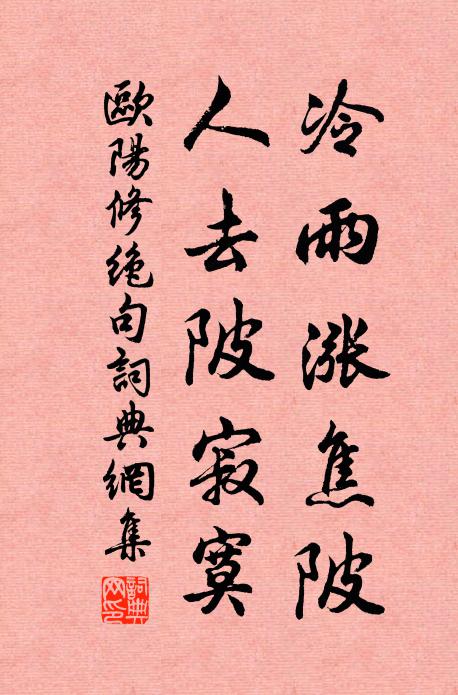 冷雨漲焦陂
人去陂寂寞
歐陽修絶句詞典網集
詞典
网印